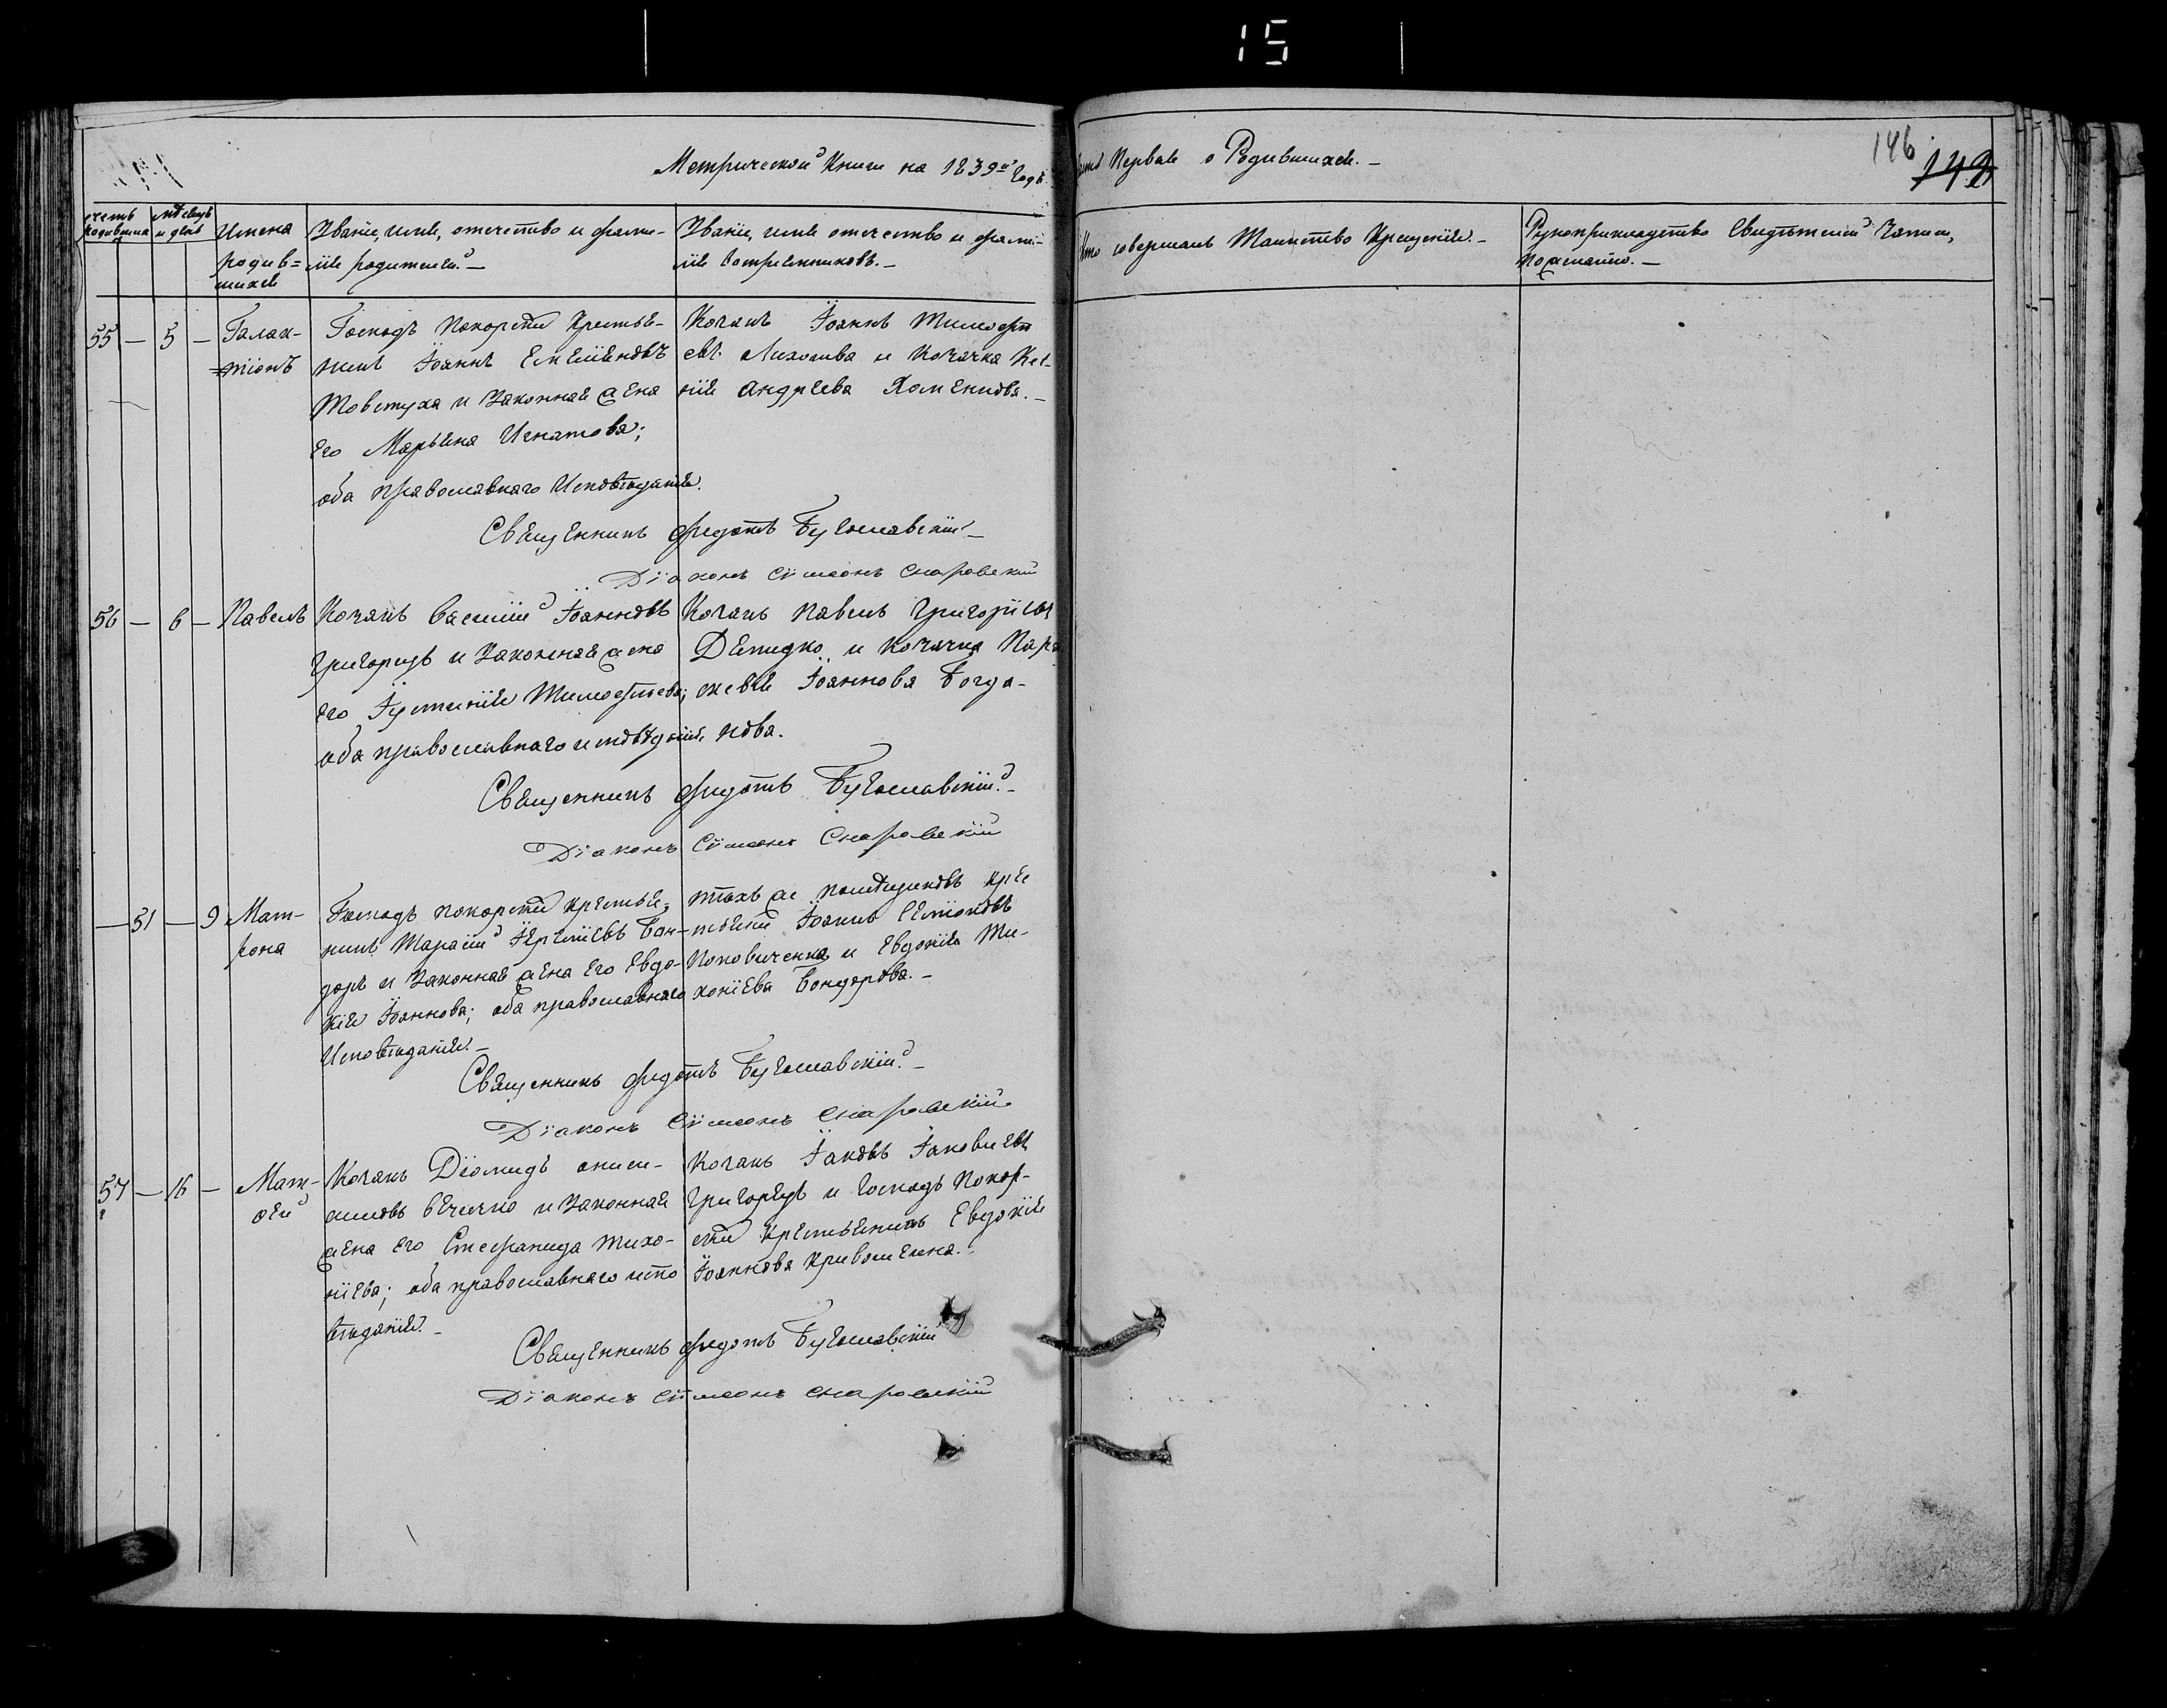 15
Метрической Книги на 1839й Годъ.
Первая о Родившихся.—
146
142
счетъ родившихся
мѣсяцъ и день
Имена родив=
шихся
Званіе, имя, отечество и фами-
лія родителей.—
Званіе, имя отечество и фами-
лія воспріемниковъ.—
Кто совершалъ Таинство Крещенія.—
Рукоприкладство Свидѣтелей Записи,
По желанію.—
55 — 5 — Галак-
тіонъ
Господъ Покорской Крестья-
нинъ Іоаннъ Емеліяновъ
Товстуха и Законная жена
Его Марьяна Игнатова;
оба православнаго Исповѣданія.
Козакъ Іоаннъ Тимофѣ
евъ и Козачка Ксе-
нія Андреева Хоменкова.—
Священникъ Федотъ Бугославскій.—
Діаконъ Сімеонъ Снаровскій
56 — 6 — Павелъ
Козакъ Василій Іоанновъ
Григорецъ и Законная жена
его Іустинія Тимофѣева;
оба православнаго исповѣданія.
Козакъ Павелъ Григоріевъ
Демидко и Козачка Пара
скевія Іоаннова Богда-
нова.
Священникъ Федотъ Бугославскій.—
Діаконъ Сімеонъ Снаровскій
— 51 — 9 Мат-
рона
Господъ Покорской Крестья-
нинъ Тарасій Іереміевъ Бон-
даръ и Законная жена Его Евдо-
кія Іоаннова; оба православнаго
Исповѣданія.—
тѣхъ же помѣщиковъ кре
стьянинъ Іоаннъ Сімеоновъ
Поповиченко и Евдокія Ти-
хоніева Бондарова.—
Священникъ Федотъ Бугославскій.—
Діаконъ Сімеонъ Снаровскій
57 — 16 — Мат-
фей
Козакъ Діомидъ Ониси-
мовъ и Законная
жена Его Стефанида Тихо-
ніева; оба православнаго испо
вѣданія.—
Козакъ Іаковъ Іаковлевъ
Григорецъ и Господъ Покор-
ской Крестьянинъ Евдокія
Іоаннова Кривошеина.—
Священникъ Федотъ Бугославскій
Діаконъ Сімеонъ Снаровскій